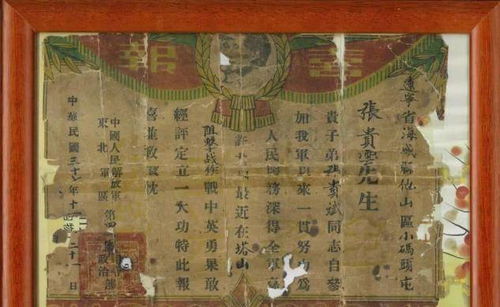 喜報
遼寧省海城縣他山區小碼頭屯
張貴雲先生
貴子弟張貴斌同志自參
加我軍以來一貫努力為
人民服務深得全軍
最近在塔山
阻擊戰作戰中英勇果敢
經評定立一大功特此報
喜並致敬祝
中國人民解放軍第四
東北軍區政治部
中華民國三十年十月二十一日